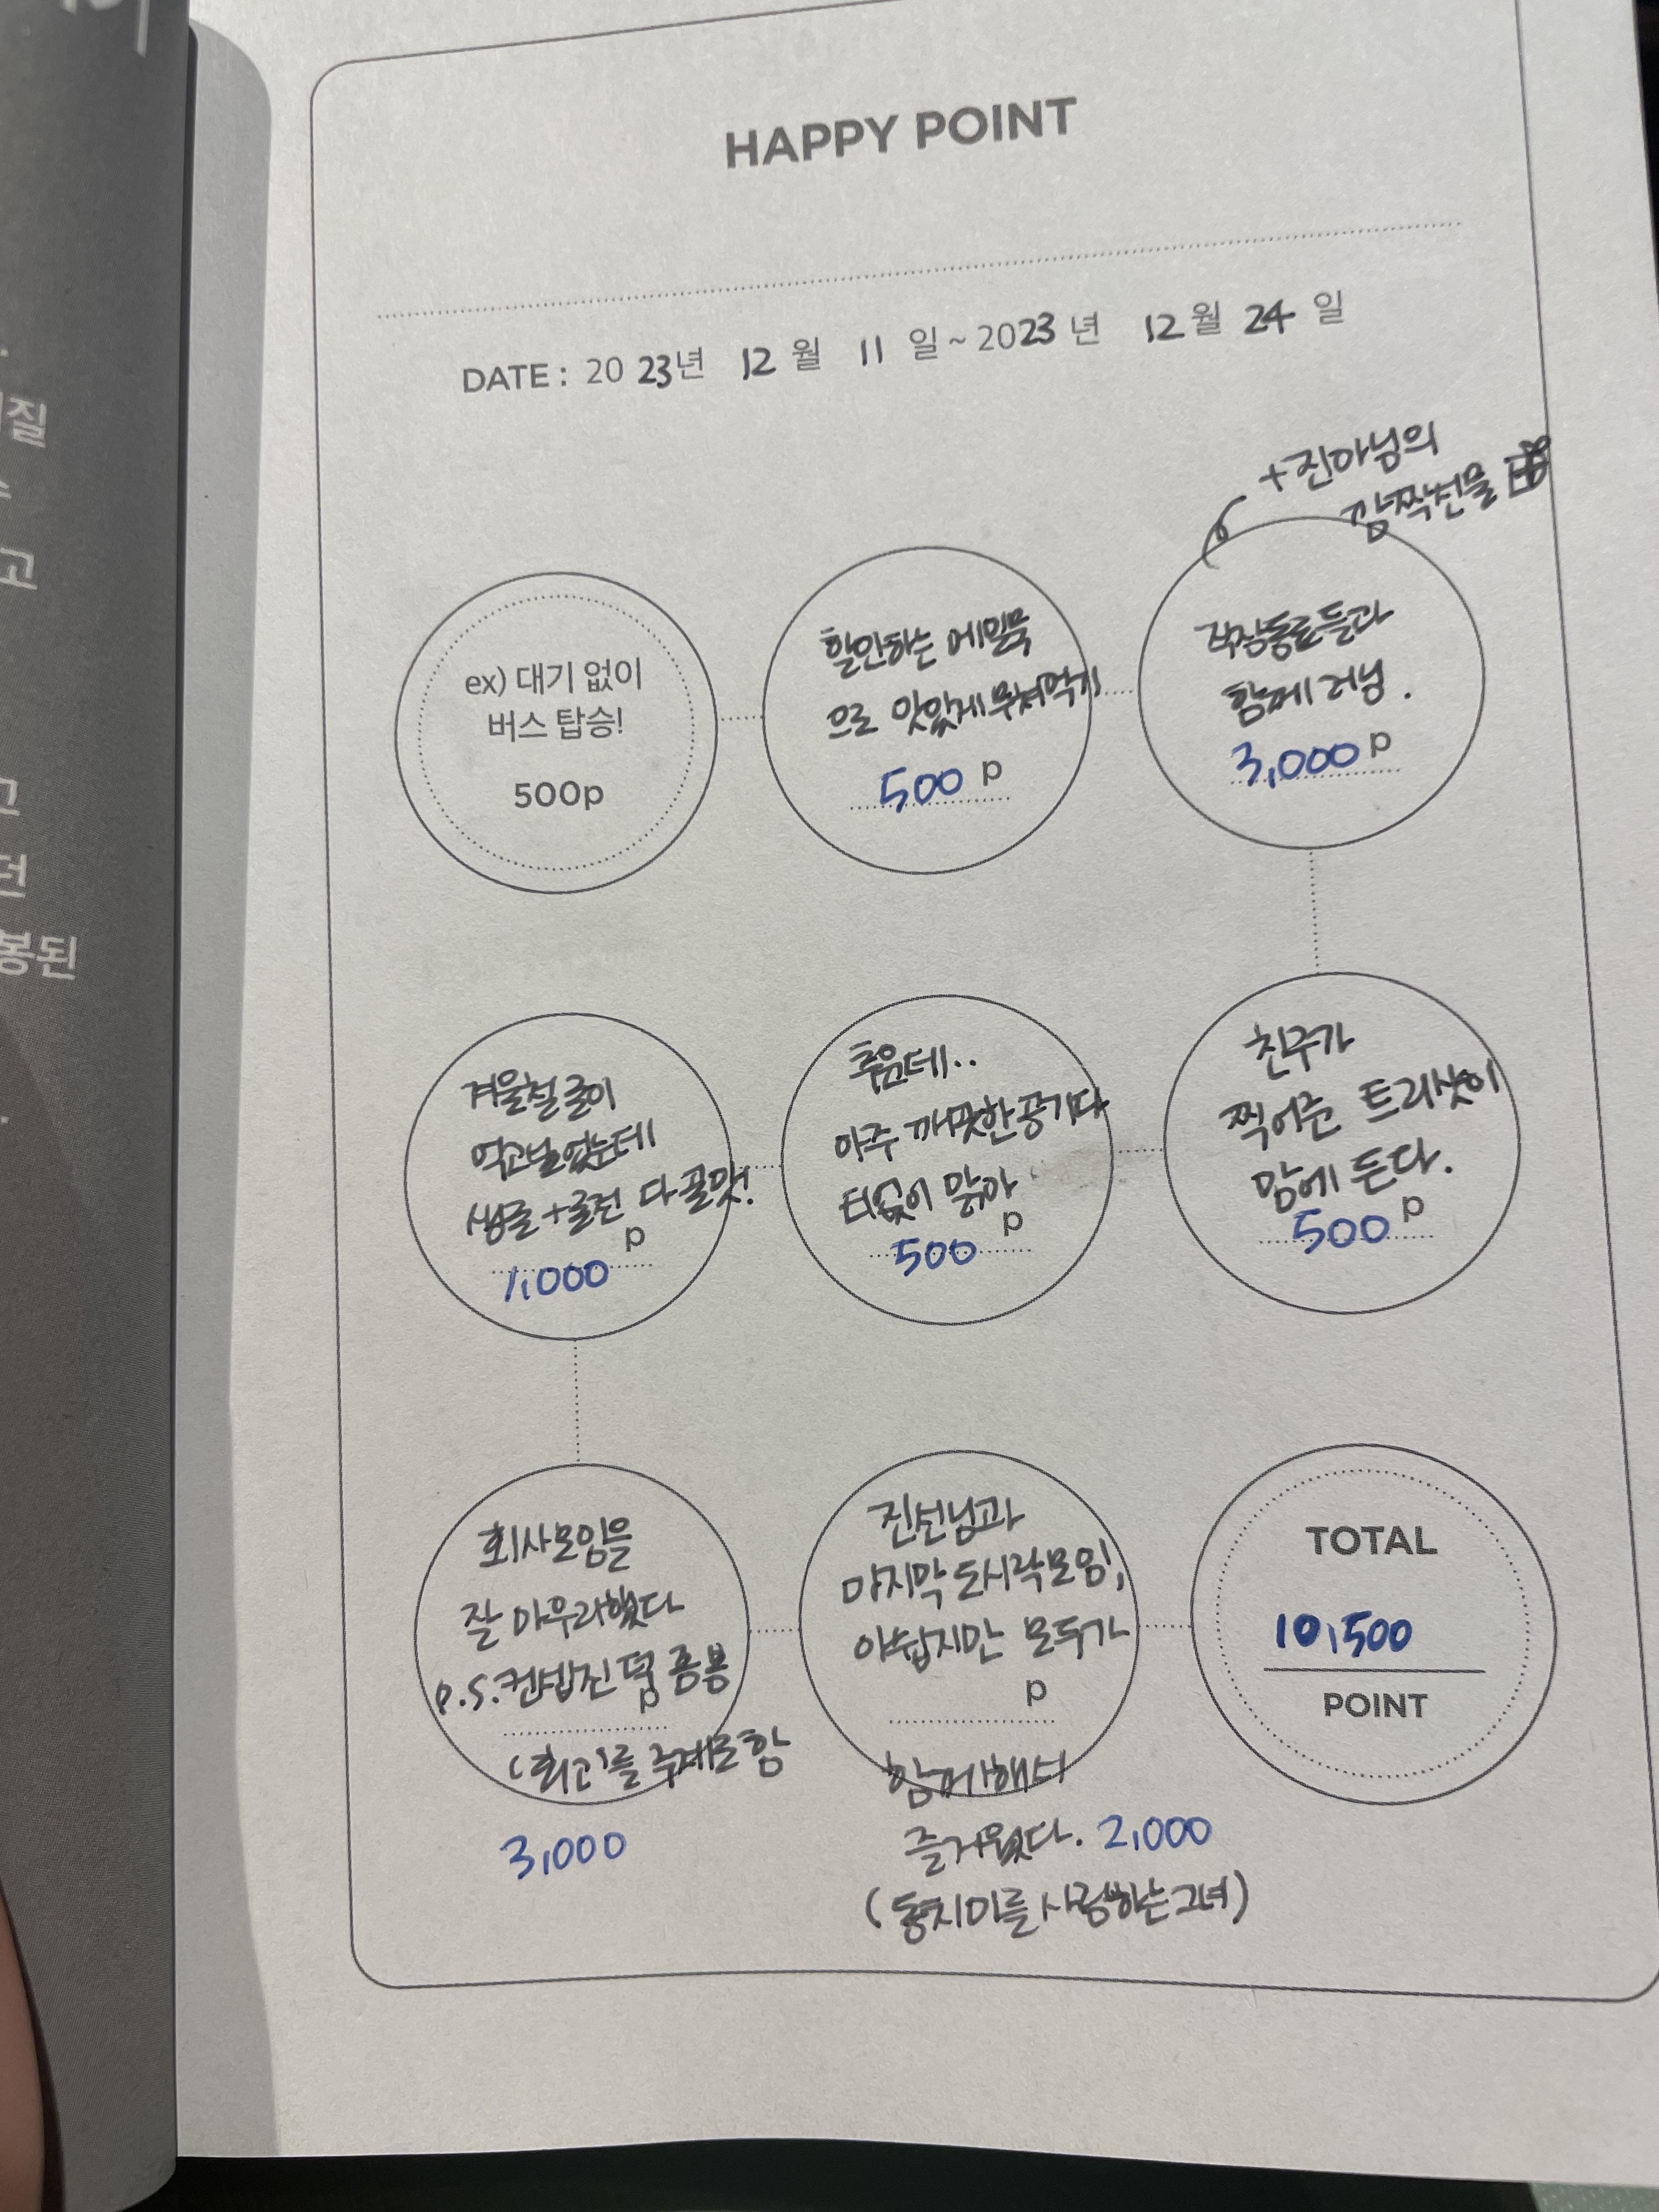 HAPPY POINT
DATE : 20 23년 12 월 11 일 ~ 2023 년 12 월 24 일
+진아님의
깜짝선물
ex) 대기 없이
버스 탑승!
500p
할인하는 메밀묵
으로 맛있게 무쳐먹기
500 p
직장동료들과
함께 러닝.
3,000 p
친구가
찍어준 트리샷이
맘에 든다.
500 p
추운데..
아주 깨끗한 공기다
티없이 맑아
p
500
겨울철 굴이
먹고싶었는데
생굴+굴전 다 꿀맛!
p
1,000
회사모임을
잘 마무리했다
p.s. 퐁퐁
p
'회고'를 주제로 함
3,000
진선님과
마지막 도시락모임,
아쉽지만 모두가
p
함께해서
즐거웠다. 2,000
(동치미를 사랑하는 그녀)
TOTAL
10,500
POINT
질
고
고
던
봉된